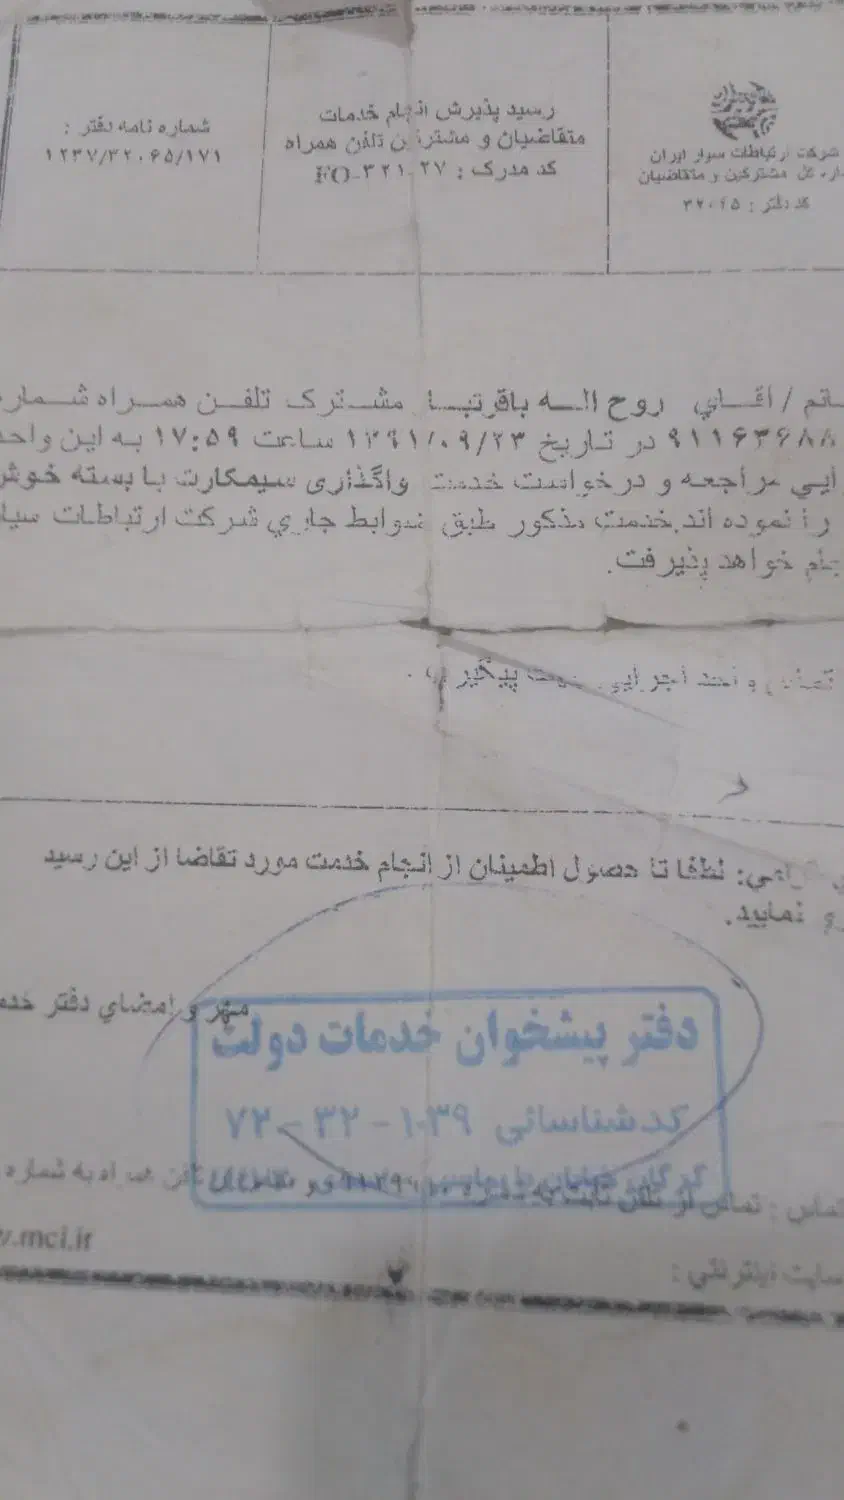 شرکت ارتباطات سیار ایران
کل مشترکین و متقاضیان
کد دفتر : ۳۲۰۶۵
رسید پذیرش انجام خدمات
متقاضیان و مشترکین تلفن همراه
کد مدرک : FO-۳۲۱-۲۷
شماره نامه دفتر :
۱۲۳۷/۳۲۰۶۵/۱۷۱
/ آقـــاي روح الـــه باقرتبـــار مشـــترک تلفـــن همـــراه شـــماره
۹۱۱۶۳۶۸۸ در تاریخ ۱۳۹۱/۰۹/۲۳ ساعت ۱۷:۵۹ به این واحد
مراجعه و درخواست خدمت واگذاری سیمکارت با بسته
را نموده اند.خدمت مذکور طبق ضوابط جاري شرکت ارتباطات
خواهد پذیرفت.
واحد اجرایی جهت پیگیری
لطفا تا حصول اطمینان از انجام خدمت مورد تقاضا از این رسید
نمایید.
مهر و امضاي دفتر
دفتر پیشخوان خدمات دولت
کد شناسائی ۱۰۳۹ - ۳۲ - ۷۲
تماس : تماس از تلفن ثابت به شماره
به شماره
سایت اینترنتي :
.mci.ir